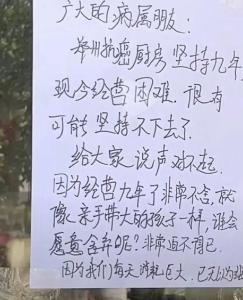 广大的病属朋友:
郑州抗癌厨房坚持九年
现今经营困难.很有
可能坚持不下去了.
给大家说声对不起.
因为经营九年了非常不舍,就
像亲手带大的孩子一样,谁会
愿意舍弃呢?非常迫不得已.
因为我们每天消耗巨大.已无以为